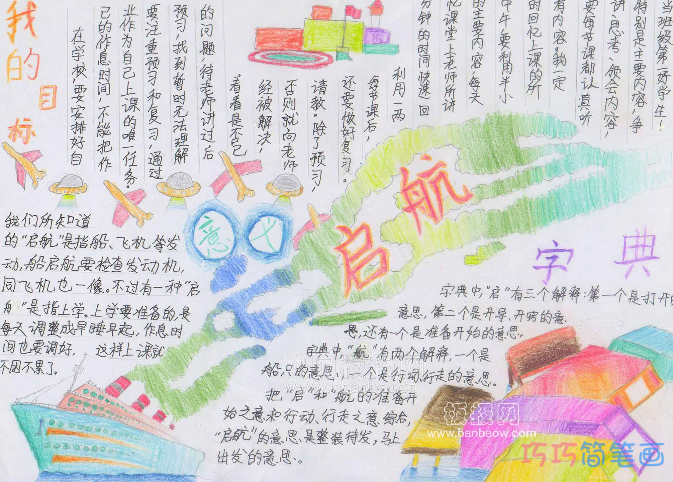 我的目标
在学校要安排好自
己的作息时间,不能把作
业作为自己上课的唯一任务。
要注重预习和复习,通过
预习,找到暂时无法理解
的问题,待老师讲过后
看看是不是已
经被解决,
否则就向老师
请教。除了预习,
还要做好复习。
每节课后,
利用一两
分钟的时间快速回
忆课堂上老师所讲
的主要内容;每天
中午,要利用半小
时回忆上课的所
有内容。我一定
要每节课都认真听
讲、思考、领会内容,
特别是主要内容,争
当班级第一的学生!
启航
意义
我们所知道
的“启航”是指船、飞机等发
动,船启航要检查发动机,
同飞机也一像。不过有一种“启
航”是指上学,上学要准备的是
每天调整成早睡早起,作息时
间也要调好, 这样上课就
不困不累了。
字典
字典中,“启”有三个解释:第一个是打开的
意思,第二个是开导、开窍的意
思,还有一个是准备开始的意思。
字典中“航”有两个解释,一个是
船只的意思,一个是行动、行走的意思。
把“启”和“航”的准备开
始之意和行动、行走之意结合,
“启航”的意思是整装待发,马上
出发的意思。
板报网
www.banbaow.com
巧巧简笔画